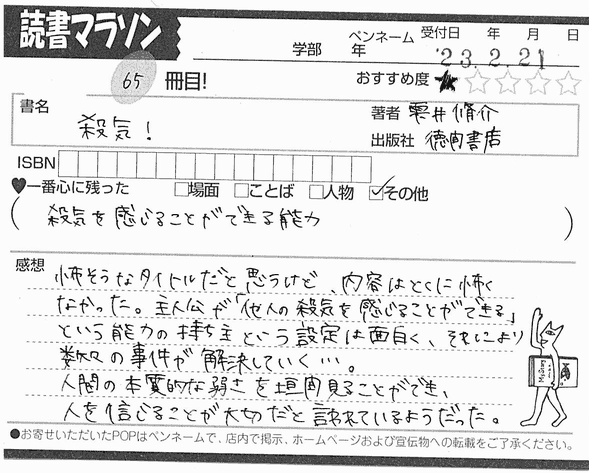 読書マラソン
学部 年 ペンネーム 受付日 年 月 日
'23.2.21
65 冊目!
おすすめ度 ★☆☆☆☆
書名 殺気!
著者 雫井脩介
出版社 徳間書店
ISBN
♥一番心に残った □場面 □ことば □人物 ☑その他
(殺気を感じることができる能力)
感想
怖そうなタイトルだと思うけど、内容はとくに怖く
なかった。主人公が「他人の殺気を感じることができる」
という能力の持ち主という設定は面白く、それにより
数々の事件が解決していく…。
人間の本質的な弱さを垣間見ることができ、
人を信じることが大切だと言われているようだった。
Mystery
●お寄せいただいたPOPはペンネームで、店内で掲示、ホームページおよび宣伝物への転載をご了承ください。